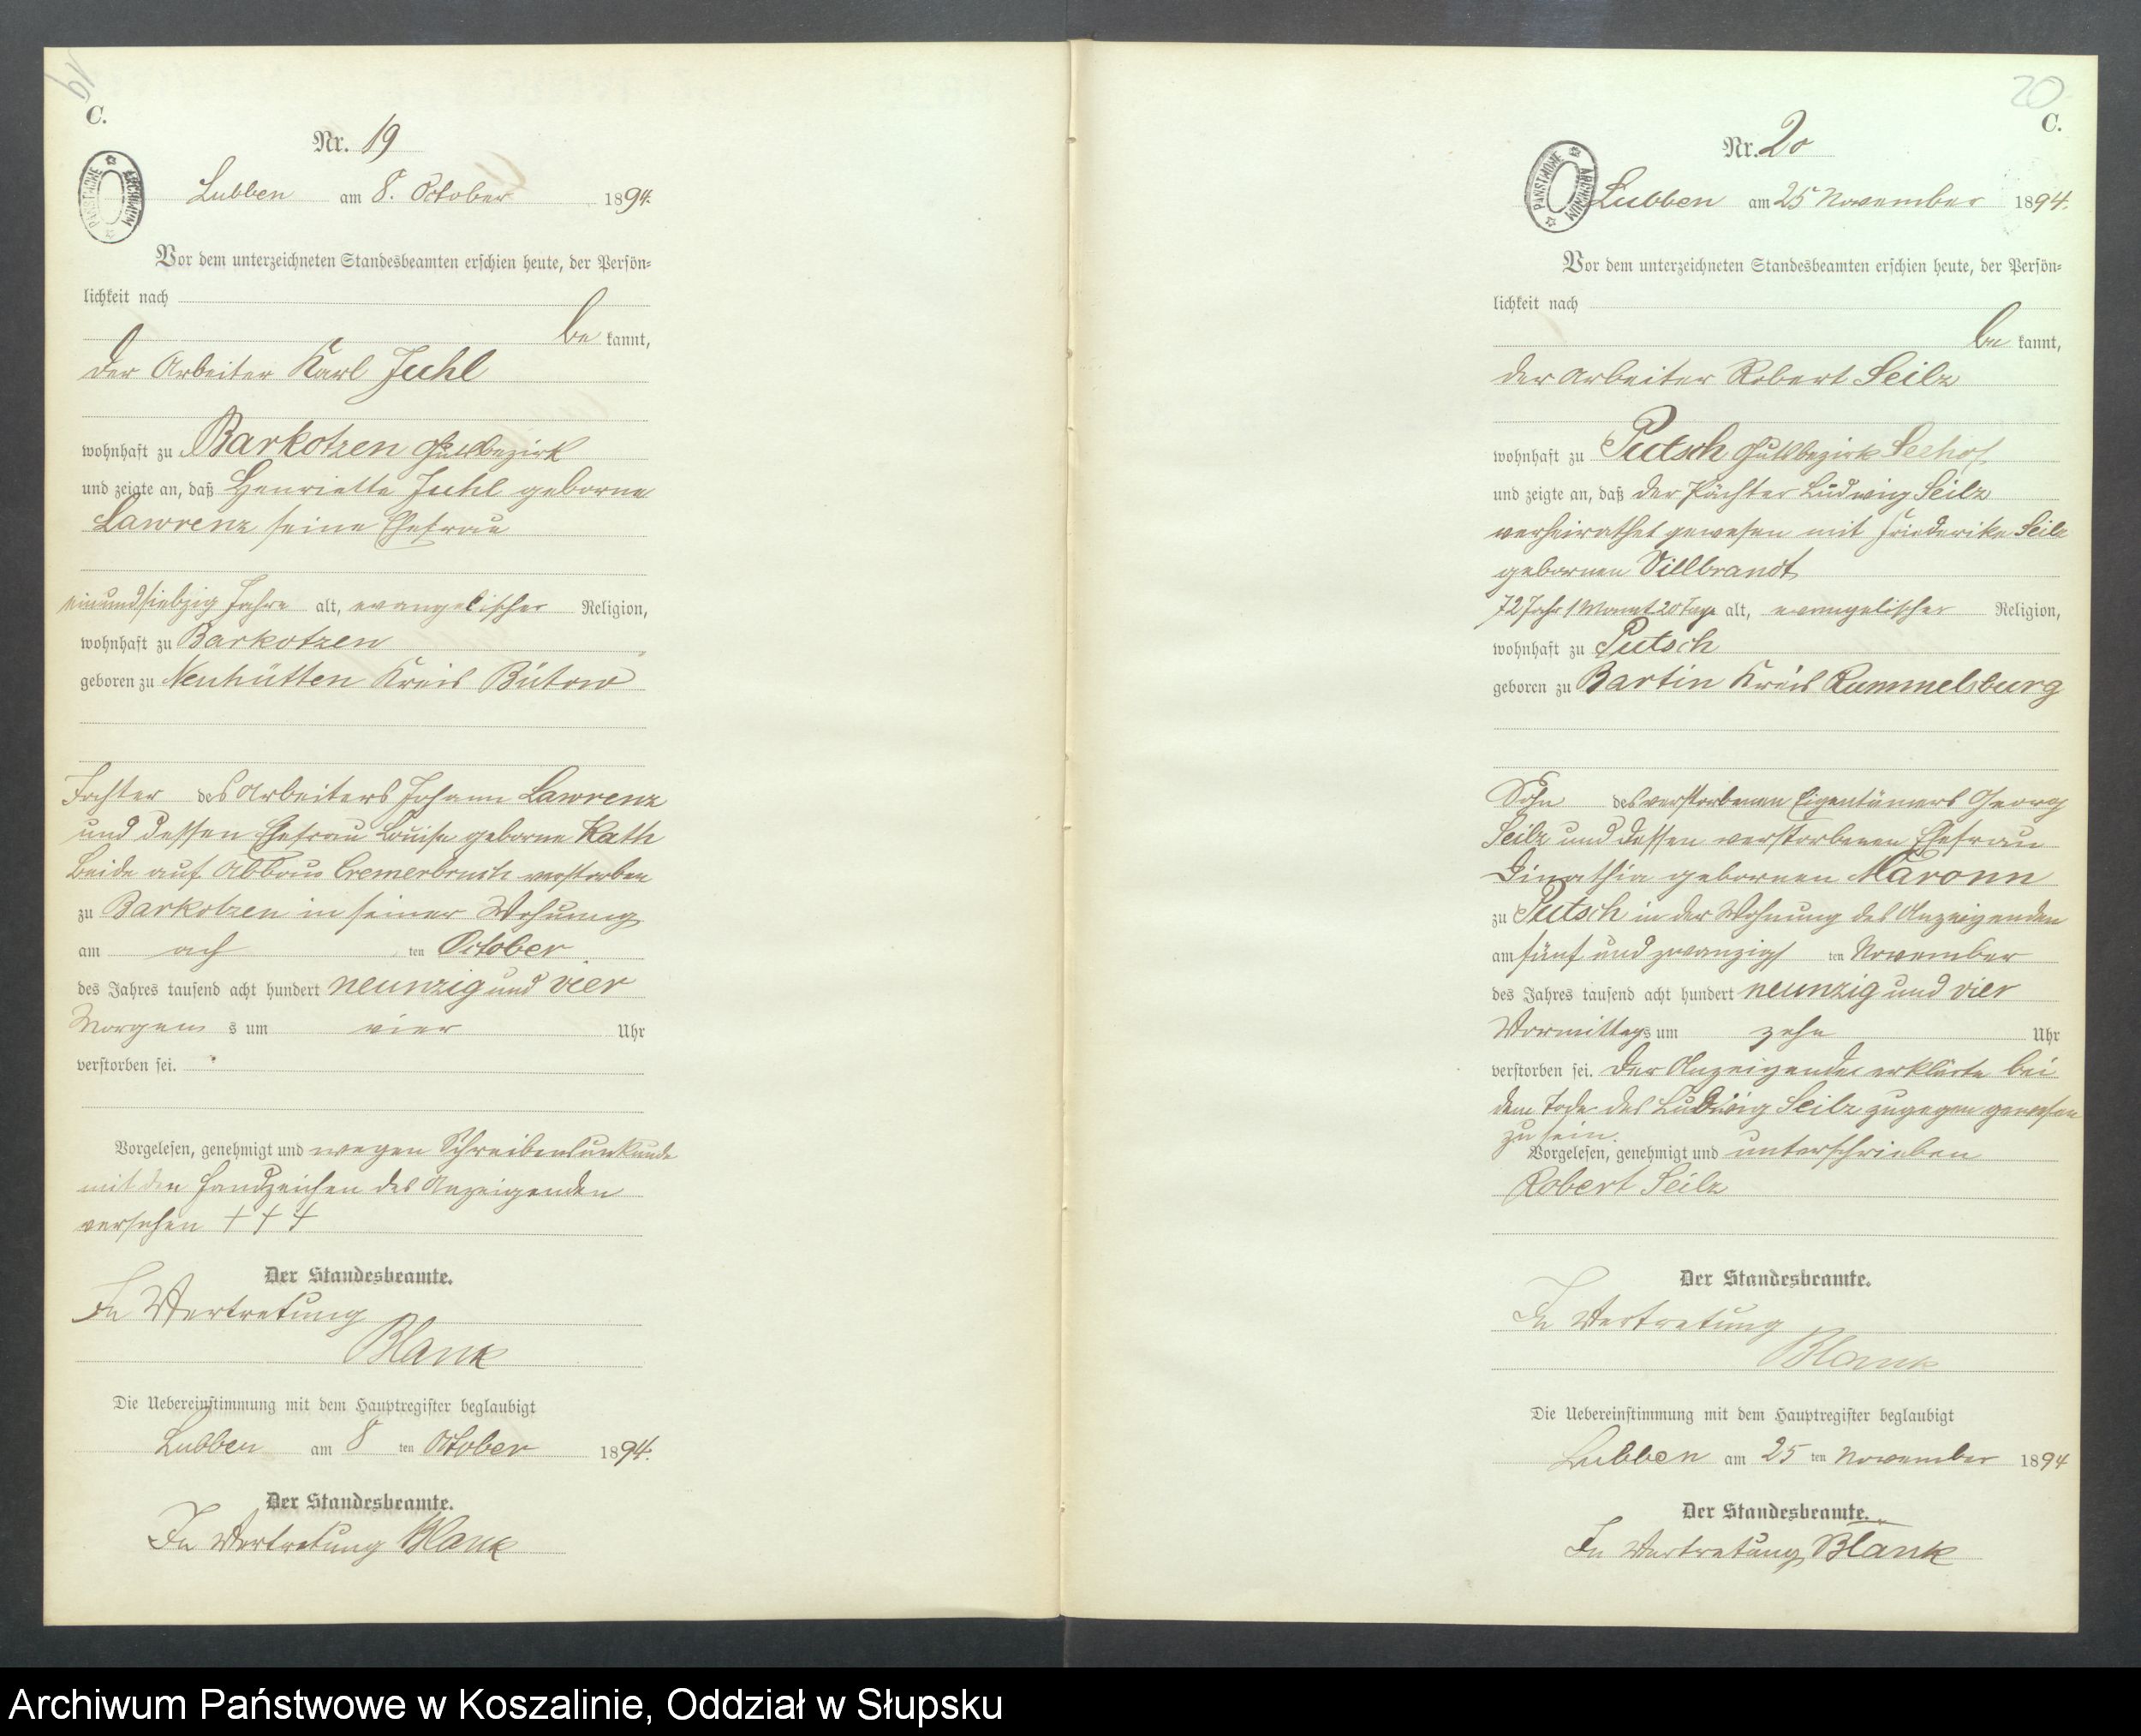 19
C.
Nr. 19
PAŃSTWOWE ARCHIWUM
Lubben am 8. October 1894.
Vor dem unterzeichneten Standesbeamten erschien heute, der Persön-
lichkeit nach
be kannt,
der Arbeiter Karl Juhl
wohnhaft zu Barkotzen Gutsbezirk
und zeigte an, daß Henriette Juhl geborne
Lawrenz seine Ehefrau
einundsiebzig Jahre alt, evangelischer Religion,
wohnhaft zu Barkotzen
geboren zu Neuhütten Kreis Bütow
Tochter des Arbeiters Johann Lawrenz
und dessen Ehefrau Louise geborne Kath
Beide auf Abbau Cremerbruch verstorben
zu Barkotzen in seiner Wohnung
am ach ten October
des Jahres tausend acht hundert neunzig und vier
Morgen s um vier Uhr
verstorben sei.
Vorgelesen, genehmigt und wegen Schreibensunkunde
mit den Handzeichen des Anzeigenden
versehen + + +
Der Standesbeamte.
In Vertretung
Blank
Die Uebereinstimmung mit dem Hauptregister beglaubigt
Lubben am 8 ten October 1894.
Der Standesbeamte.
In Vertretung Blank
20
C.
Nr. 20
PAŃSTWOWE ARCHIWUM
Lubben am 25 November 1894.
Vor dem unterzeichneten Standesbeamten erschien heute, der Persön-
lichkeit nach
be kannt,
der Arbeiter Robert Seilz
wohnhaft zu Putsch Gutsbezirk Seehof
und zeigte an, daß der Pächter Ludwig Seilz
verheirathet gewesen mit Friederike Seilz
gebornen Villbrandt
72 Jahr 1 Monat 20 Tage alt, evangelischer Religion,
wohnhaft zu Putsch
geboren zu Bartin Kreis Rummelsburg
Sohn des verstorbenen Eigentümers Georg
Seilz und dessen verstorbenen Ehefrau
gebornen Maronn
zu Putsch in der Wohnung des Anzeigenden
am fünf und zwanzigs ten November
des Jahres tausend acht hundert neunzig und vier
Vormittags um zehn Uhr
verstorben sei. Der Anzeigende erklärte bei
dem Tode des Ludwig Seilz zugegen gewesen
zu sein.
Vorgelesen, genehmigt und unterschrieben
Robert Seilz
Der Standesbeamte.
In Vertretung
Blank
Die Uebereinstimmung mit dem Hauptregister beglaubigt
Lubben am 25 ten November 1894
Der Standesbeamte.
In Vertretung Blank
Archiwum Państwowe w Koszalinie, Oddział w Słupsku